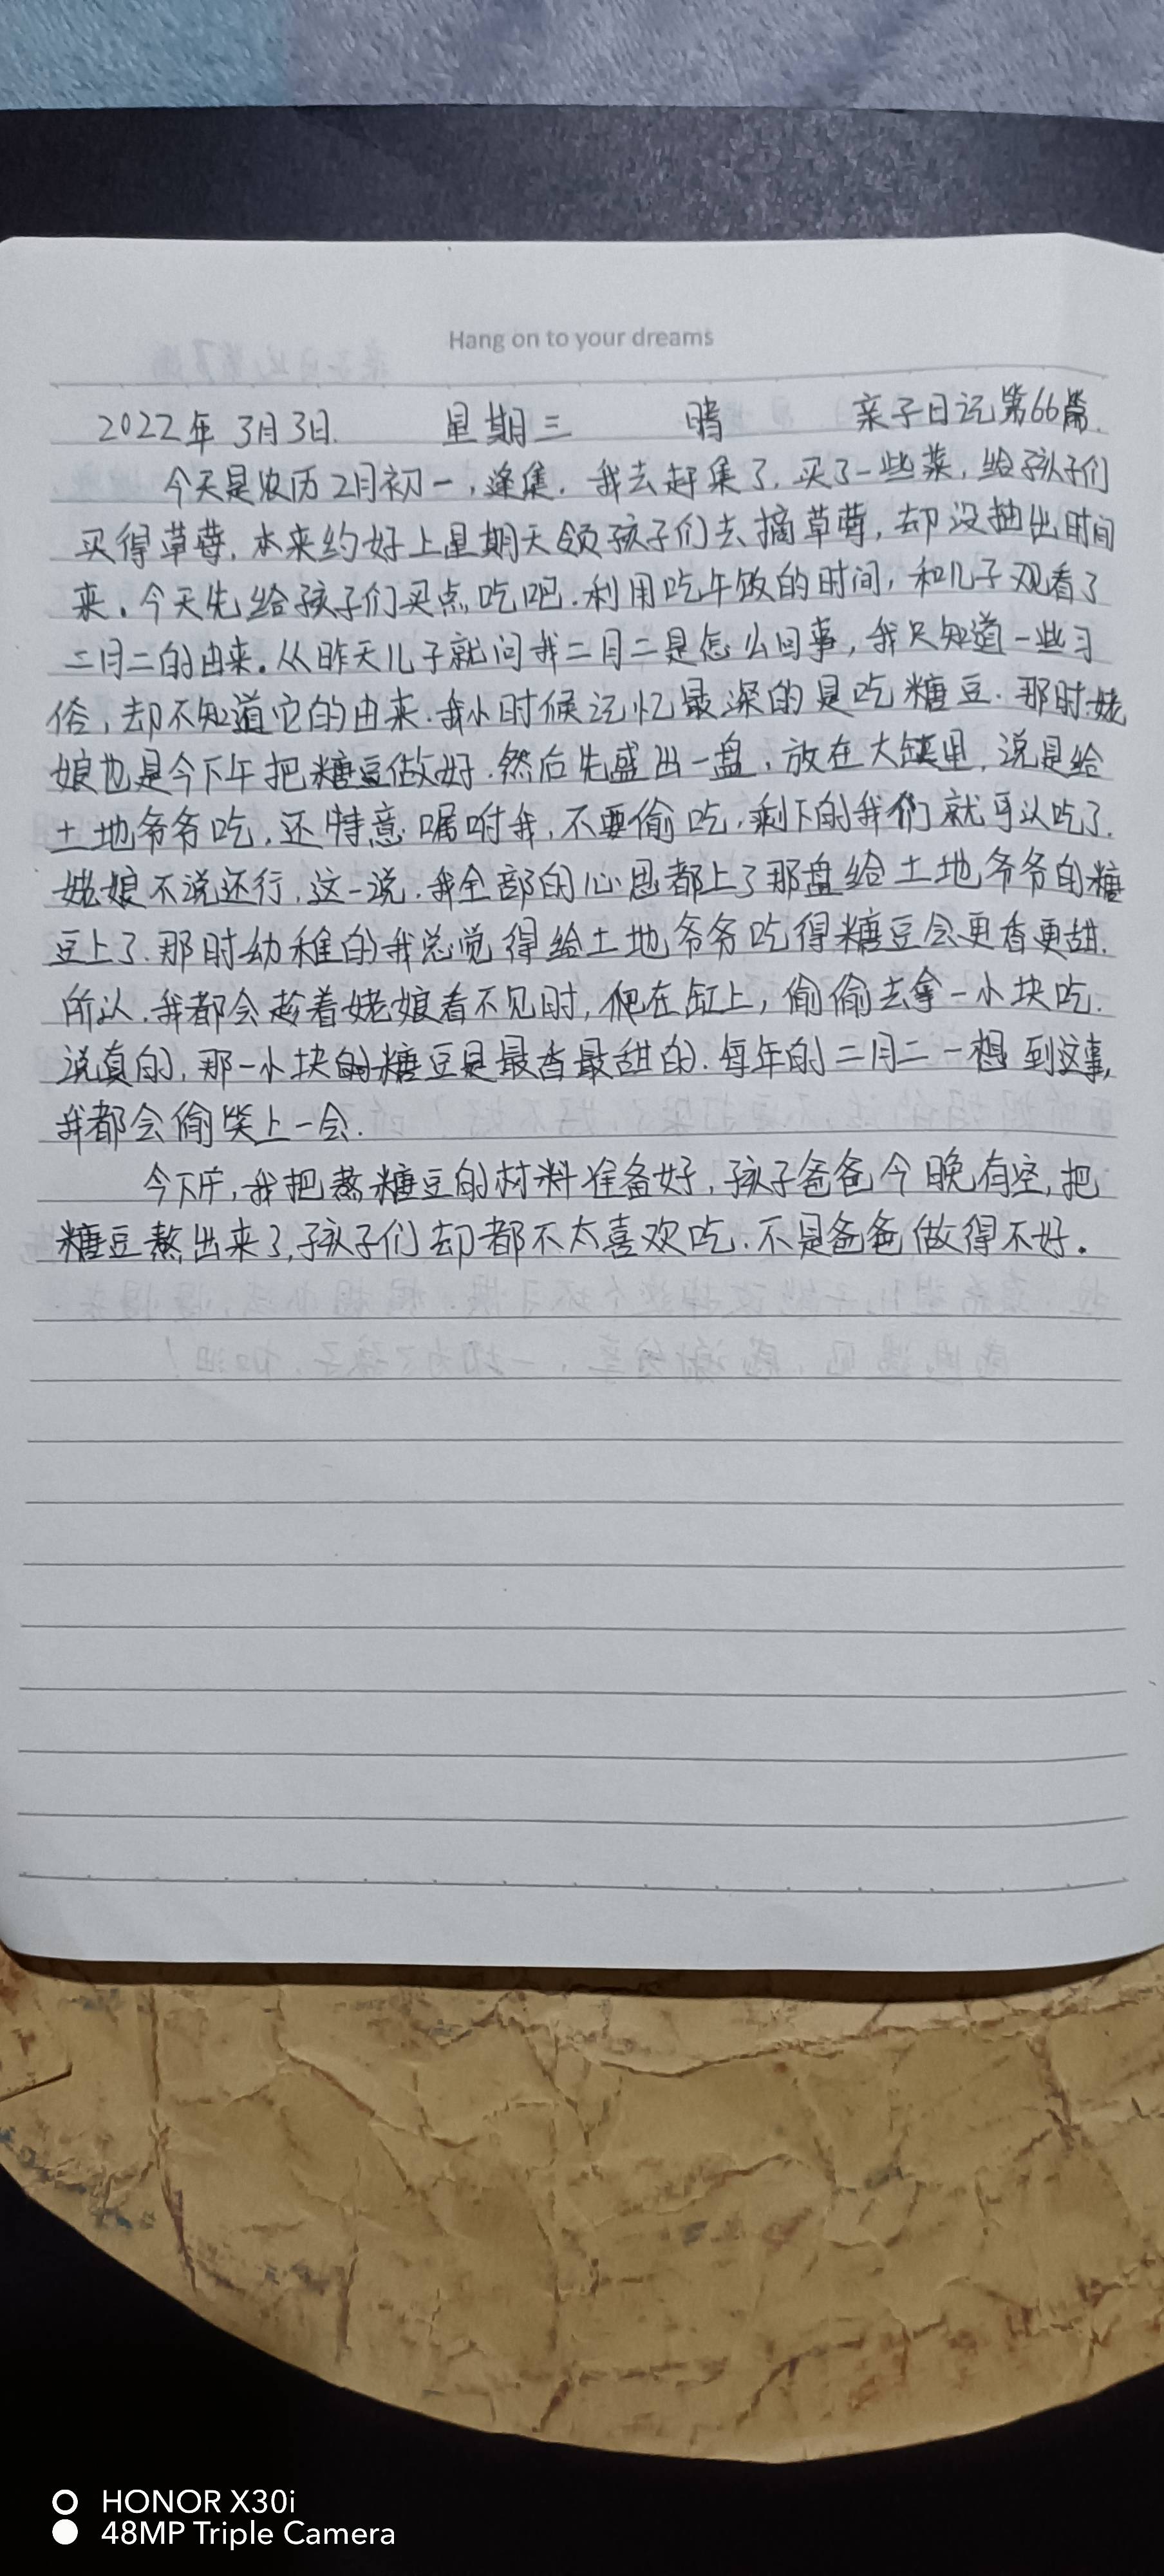 Hang on to your dreams
2022年 3月3日. 星期三 晴 亲子日记第66篇.
今天是农历2月初一,逢集.我去赶集了.买了一些菜,给孩子们
买得草莓.本来约好上星期天领孩子们去摘草莓,却没抽出时间
来.今天先给孩子们买点吃吧.利用吃午饭的时间,和儿子观看了
二月二的由来.从昨天儿子就问我二月二是怎么回事,我只知道一些习
俗,却不知道它的由来.我小时候记忆最深的是吃糖豆.那时姥
娘也是今下午把糖豆做好.然后先盛出一盘,放在大缸里,说是给
土地爷爷吃,还特意嘱咐我,不要偷吃,剩下的我们就可以吃了.
姥娘不说还行,这一说.我全部的心思都上了那盘给土地爷爷的糖
豆上了.那时幼稚的我总觉得给土地爷爷吃得糖豆会更香更甜.
所以.我都会趁着姥娘看不见时,爬在缸上,偷偷去拿一小块吃.
说真的,那一小块的糖豆是最香最甜的.每年的二月二一想到这事,
我都会偷笑上一会.
今下午,我把熬糖豆的材料准备好,孩子爸爸今晚有空,把
糖豆熬出来了,孩子们却都不太喜欢吃.不是爸爸做得不好.
HONOR X30i
48MP Triple Camera